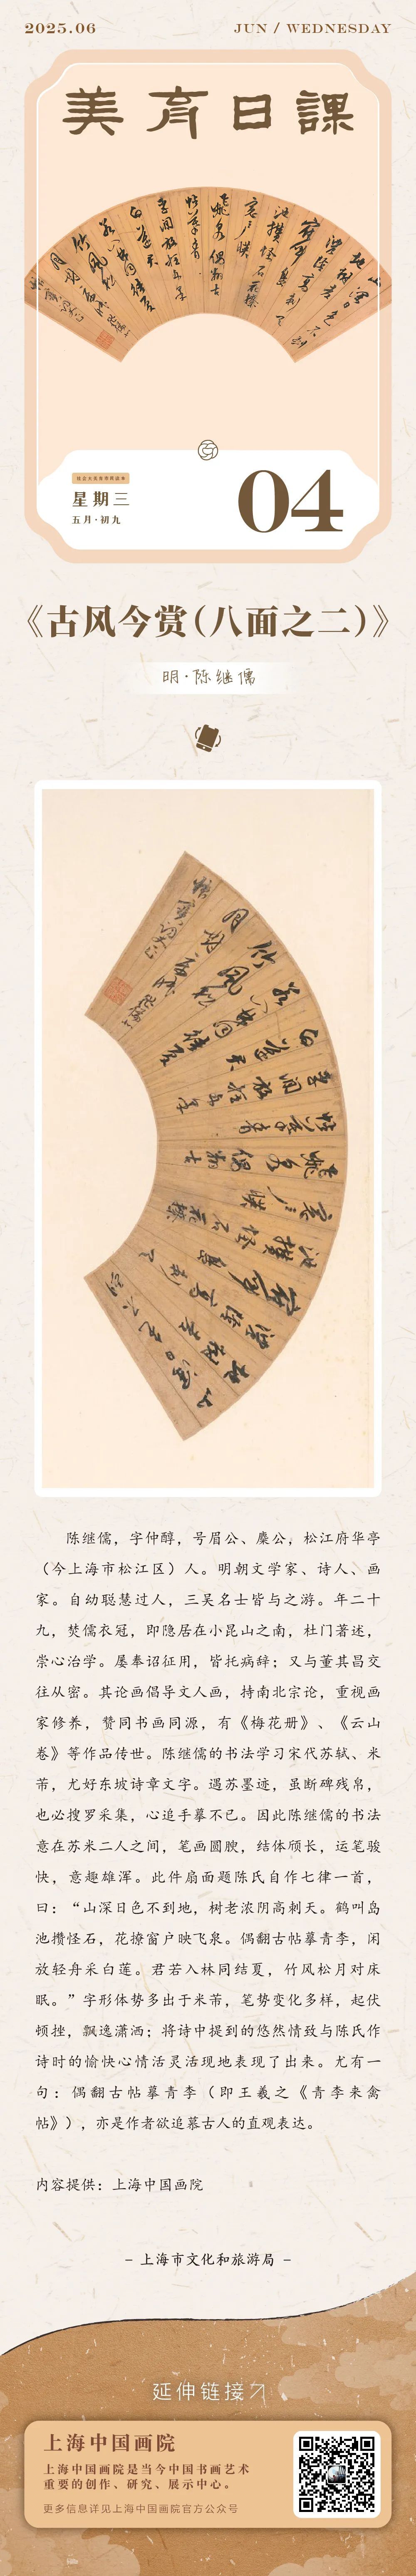 2025.06
JUN / WEDNESDAY
美育日課
星期三
五月·初九
04
《古风今赏(八面之二)》
明·陈继儒
陈继儒，字仲醇，号眉公、麋公，松江府华亭
（今上海市松江区）人。明朝文学家、诗人、画
家。自幼聪慧过人，三吴名士皆与之游。年二十
九，焚儒衣冠，即隐居在小昆山之南，杜门著述，
崇心治学。屡奉诏征用，皆托病辞；又与董其昌交
往从密。其论画倡导文人画，持南北宗论，重视画
家修养，赞同书画同源，有《梅花册》、《云山
卷》等作品传世。陈继儒的书法学习宋代苏轼、米
芾，尤好东坡诗章文字。遇苏墨迹，虽断碑残帛，
也必搜罗采集，心追手摹不已。因此陈继儒的书法
意在苏米二人之间，笔画圆腴，结体颀长，运笔骏
快，意趣雄浑。此件扇面题陈氏自作七律一首，
曰：“山深日色不到地，树老浓阴高刺天。鹤叫岛
池攒怪石，花撩窗户映飞泉。偶翻古帖摹青李，闲
放轻舟采白莲。君若入林同结夏，竹风松月对床
眠。”字形体势多出于米芾，笔势变化多样，起伏
顿挫，飘逸潇洒；将诗中提到的悠然情致与陈氏作
诗时的愉快心情活灵活现地表现了出来。尤有一
句：偶翻古帖摹青李（即王羲之《青李来禽
帖》），亦是作者欲追慕古人的直观表达。
内容提供：上海中国画院
– 上海市文化和旅游局 –
延伸链接
上海中国画院
上海中国画院是当今中国书画艺术
重要的创作、研究、展示中心。
更多信息详见上海中国画院官方公众号